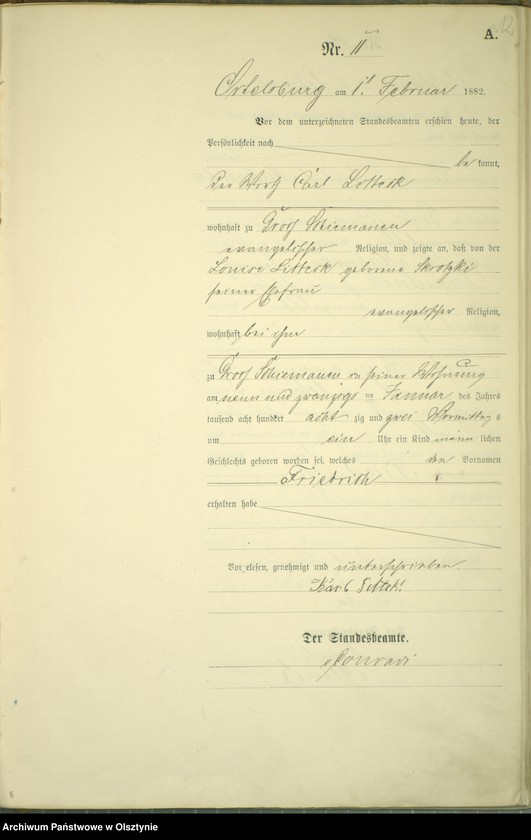 12
A.
Nr. 11
Ortelsburg am 1. Februar 1882.
Vor dem unterzeichneten Standesbeamten erschien heute, der
Persönlichkeit nach
be kannt,
der Wirth Carl
wohnhaft zu Groß Schiemanen
evangelischer Religion, und zeigte an, daß von der
Louise geborene Skrotzki
seiner Ehefrau
evangelischer Religion,
wohnhaft bei ihm
zu Groß Schiemanen in seiner Wohnung
am neun und zwanzigs ten Januar des Jahres
tausend acht hundert acht zig und zwei Vormittags
um ein Uhr ein Kind männ lichen
Geschlechts geboren worden sei, welches den Vornamen
Friedrich
erhalten habe
Vorgelesen, genehmigt und unterschrieben.
Karl
Der Standesbeamte.
Conradi
Archiwum Państwowe w Olsztynie